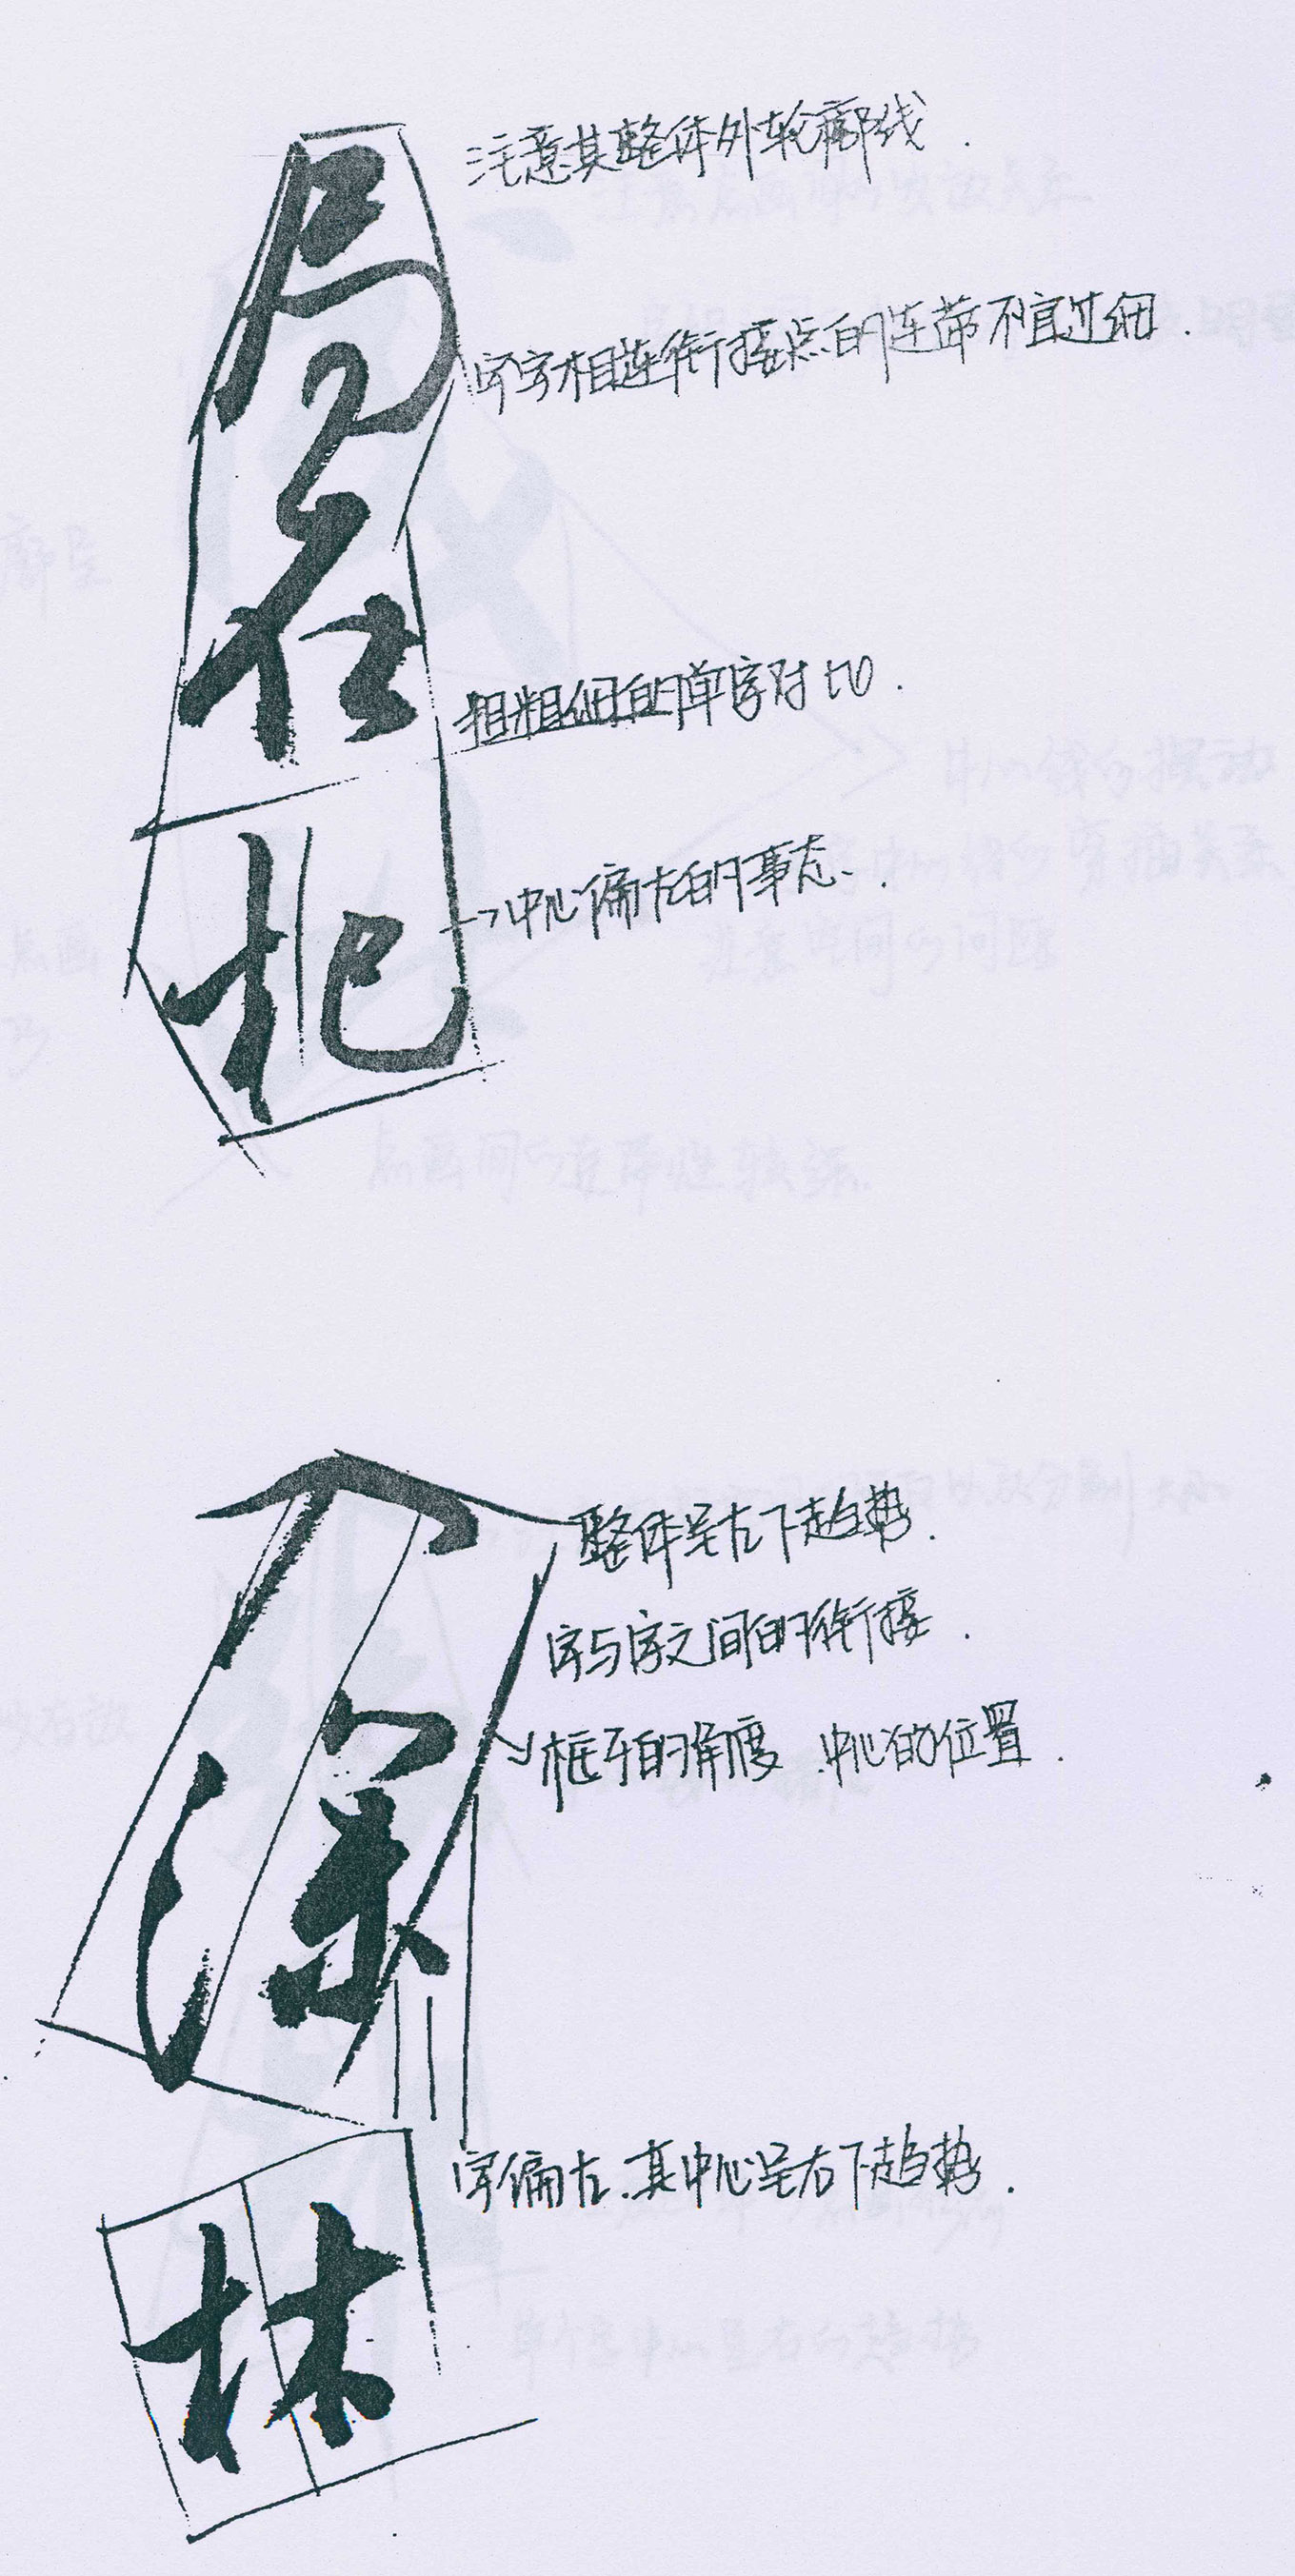 居在北
注意其整体外轮廓线.
字字相连衔接点的连带不宜过细.
粗粗细的单字对比.
→中心偏左的事态.
入深林
整体呈左下趋势.
字与字之间的衔接.
框子的角度.中心的位置.
字偏左.其中心呈右下趋势.